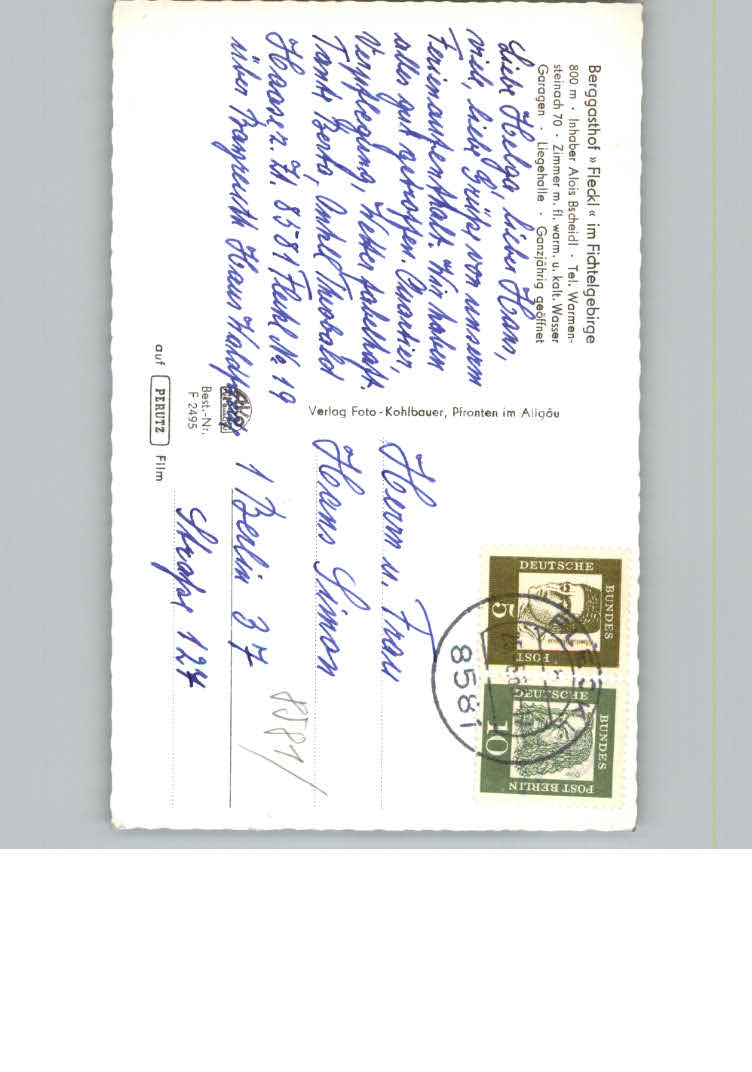 Berggasthof » Fleckl « im Fichtelgebirge
800 m · Inhaber Alois Bscheidl · Tel. Warmen-
steinach 70 · Zimmer m. fl. warm. u. kalt. Wasser
Garagen · Liegehalle · Ganzjährig geöffnet
Liebe Helga, lieber Hans,
viele, liebe Grüße von unserem
Ferienaufenthalt. Wir haben
alles gut getroffen. Quartier,
Verpflegung, Wetter fabelhaft.
Tante Berta, Onkel Theobald
Haase z. Zt. 8581 Fleckl № 19
über Bayreuth Haus Waldfrieden
Best.-Nr.
F 2495
auf PERUTZ Film
Verlag Foto-Kohlbauer, Pfronten im Allgäu
Herrn u. Frau
Hans Simon
1 Berlin 37
Straße 124
8581/
DEUTSCHE
BUNDES
POST
5
DEUTSCHE
BUNDES
POST BERLIN
10
FLECKL
8581